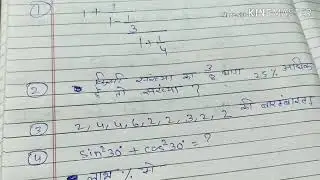 ① 1 + 1
1 - 1
3
1 + 1
4
② किसी संख्या का 3/8 भाग 25% अधिक
है तो संख्या ?
③ 2, 4, 4, 6, 2, 2, 3, 2, 2 की बारम्बारता
④ sin²30° + cos²30° = ?
लाभ % में
KINEMASTER